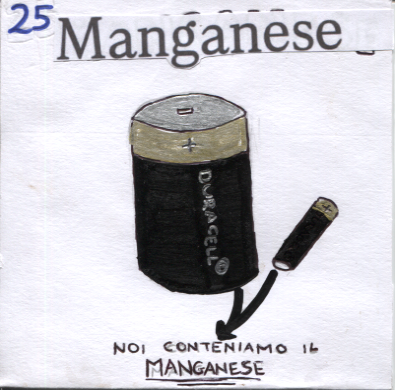 25 Manganese
-
+
DURACELL®
+
NOI CONTENIAMO IL
MANGANESE